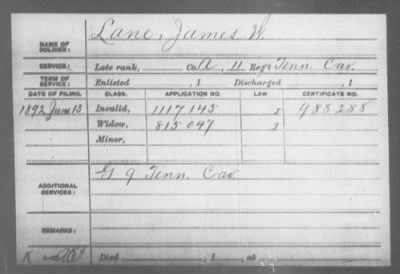 NAME OF SOLDIER: Lane, James W.
SERVICE: Late rank, Co. A, 11 Reg't Tenn. Cav.
TERM OF SERVICE: Enlisted , 1 Discharged , 1
DATE OF FILING. CLASS. APPLICATION NO. LAW. CERTIFICATE NO.
1892 June 13 Invalid, 1117145 983288
Widow, 815047
Minor,
ADDITIONAL SERVICES: G 9 Tenn. Cav.
REMARKS:
K Died , 1 , at